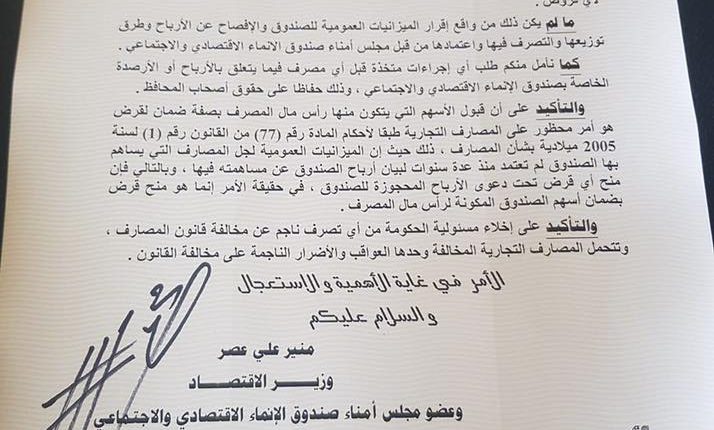 لأي قروض .
ما لم يكن ذلك من واقع إقرار الميزانيات العمومية للصندوق والإفصاح عن الأرباح وطرق
توزيعها والتصرف فيها واعتمادها من قبل مجلس أمناء صندوق الانماء الاقتصادي والاجتماعي .
كما نأمل منكم طلب أي إجراءات متخذة قبل أي مصرف فيما يتعلق بالأرباح أو الأرصدة
الخاصة بصندوق الإنماء الاقتصادي والاجتماعي ، وذلك حفاظا على حقوق أصحاب المحافظ .
والتأكيد على أن قبول الأسهم التي يتكون منها رأس مال المصرف بصفة ضمان لقرض
هو أمر محظور على المصارف التجارية طبقا لأحكام المادة رقم (77) من القانون رقم (1) لسنة
2005 ميلادية بشأن المصارف ، ذلك حيث إن الميزانيات العمومية لجل المصارف التي يساهم
بها الصندوق لم تعتمد منذ عدة سنوات لبيان أرباح الصندوق عن مساهمته فيها ، وبالتالي فإن
منح أي قرض تحت دعوى الأرباح المحجوزة للصندوق ، في حقيقة الأمر إنما هو منح قرض
بضمان أسهم الصندوق المكونة لرأس مال المصرف .
والتأكيد على إخلاء مسئولية الحكومة من أي تصرف ناجم عن مخالفة قانون المصارف ،
وتتحمل المصارف التجارية المخالفة وحدها العواقب والأضرار الناجمة على مخالفة القانون .
الأمر في غاية الأهمية والاستعجال
والسلام عليكم
منير علي عصر
وزير الاقتصاد
وعضو مجلس أمناء صندوق الإنماء الاقتصادي والاجتماعي